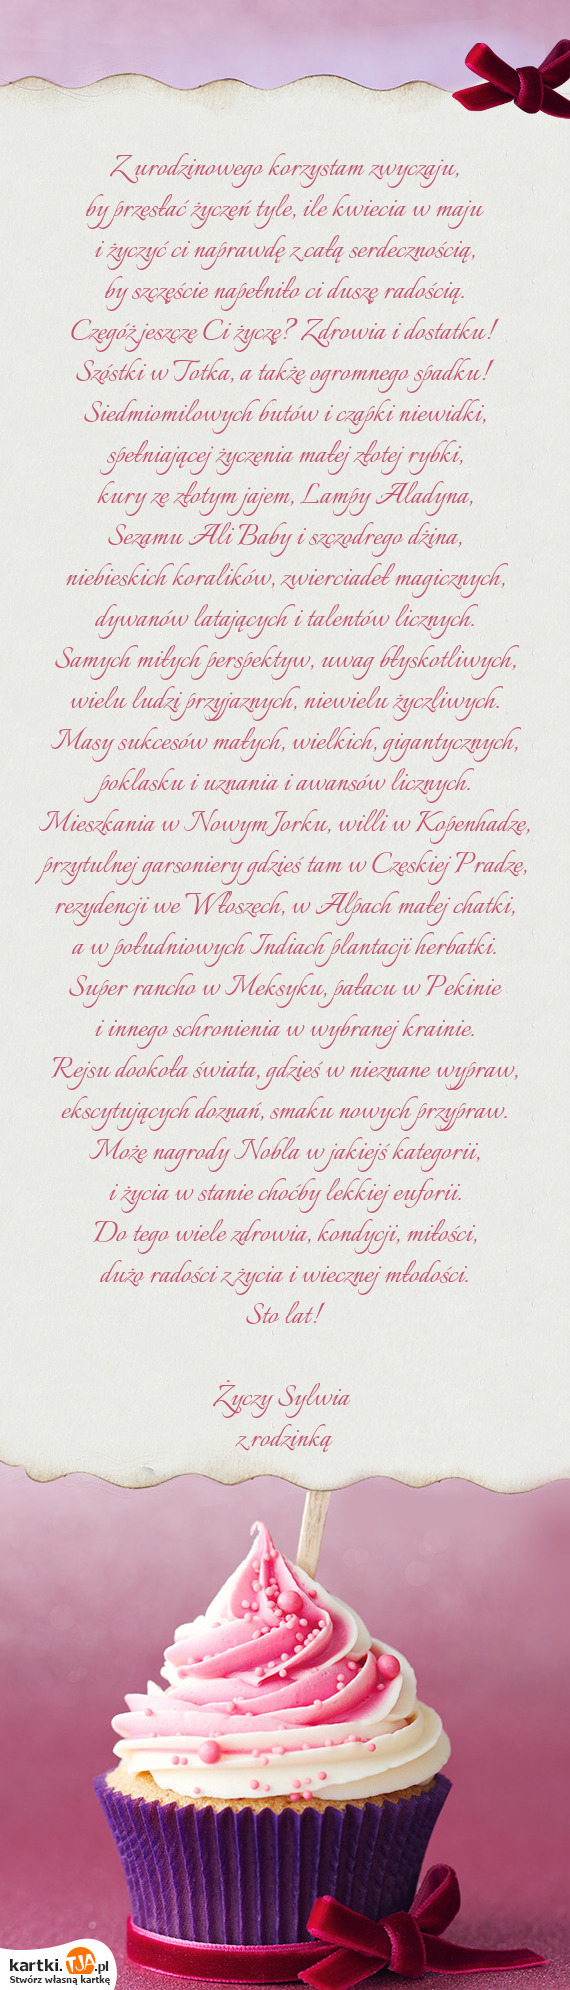 Z urodzinowego korzystam zwyczaju,
by przesłać życzeń tyle, ile kwiecia w maju
i życzyć ci naprawdę z całą serdecznością,
by szczęście napełniło ci duszę radością.
Czegóż jeszcze Ci życzę? Zdrowia i dostatku!
Szóstki w Totka, a także ogromnego spadku!
Siedmiomilowych butów i czapki niewidki,
spełniającej życzenia małej złotej rybki,
kury ze złotym jajem, Lampy Aladyna,
Sezamu Ali Baby i szczodrego dżina,
niebieskich koralików, zwierciadeł magicznych,
dywanów latających i talentów licznych.
Samych miłych perspektyw, uwag błyskotliwych,
wielu ludzi przyjaznych, niewielu życzliwych.
Masy sukcesów małych, wielkich, gigantycznych,
poklasku i uznania i awansów licznych.
Mieszkania w Nowym Jorku, willi w Kopenhadze,
przytulnej garsoniery gdzieś tam w Czeskiej Pradze,
rezydencji we Włoszech, w Alpach małej chatki,
a w południowych Indiach plantacji herbatki.
Super rancho w Meksyku, pałacu w Pekinie
i innego schronienia w wybranej krainie.
Rejsu dookoła świata, gdzieś w nieznane wypraw,
ekscytujących doznań, smaku nowych przypraw.
Może nagrody Nobla w jakiejś kategorii,
i życia w stanie choćby lekkiej euforii.
Do tego wiele zdrowia, kondycji, miłości,
dużo radości z życia i wiecznej młodości.
Sto lat!
Życzy Sylwia
z rodzinką
kartki.TJA.pl
Stwórz własną kartkę